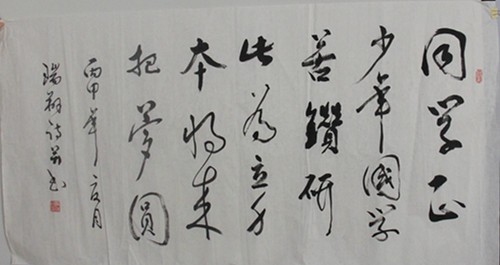 同学正
少年國学
善鑽研
此为立身
本将来
把夢圓
丙申年夏月
瑞翔诗并书